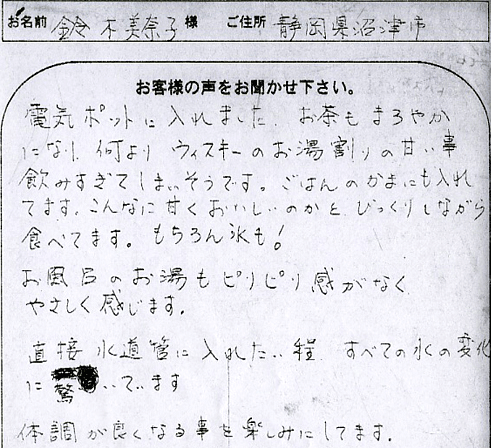 お名前 鈴木美奈子 様 ご住所 静岡県沼津市
お客様の声をお聞かせ下さい。
電気ポットに入れました。お茶もまろやか
になり、何より ウィスキーのお湯割りの甘い事
飲みすぎてしまいそうです。ごはんのかまにも入れ
てます。こんなに甘くおいしいのかと、びっくりしながら
食べてます。もちろん氷も!
お風呂のお湯もピリピリ感がなく
やさしく感じます。
直接 水道管に入れたい程 すべての水の変化
に驚いています
体調が良くなる事を楽しみにしてます。